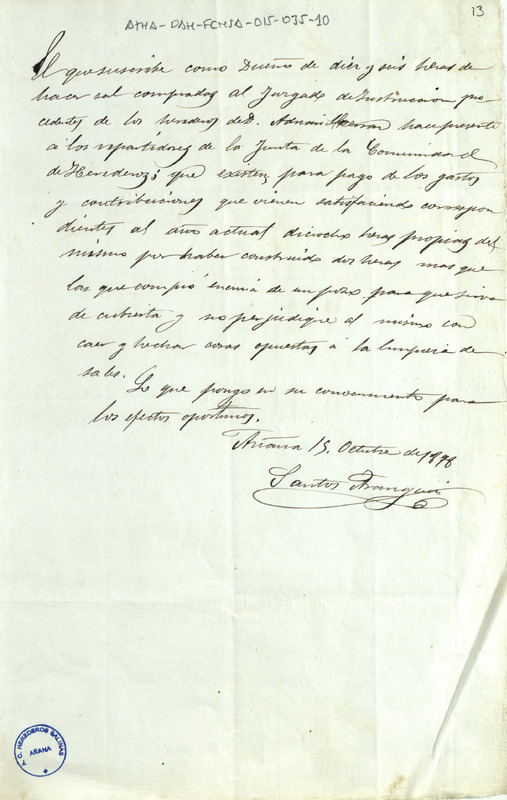 ATHA-DAH-FCHSA-015-035-10
13
El que suscribe como Dueño de diez y seis heras de
hacer sal compradas al Juzgado de Instruccion pro-
cedentes de los herederos de D. Adrian Herran hace presente
á los repartidores de la Junta de la Comunidad
de Herederos; que existen para pago de los gastos
y contribuciones que vienen satisfaciendo correspon
dientes al año actual dieciocho heras propias del
mismo por haber construido dos heras mas que
las que compró encima de un pozo para que sirva
de cubierta y no perjudique al mismo con
caer y hechar cosas opuestas á la limpieza de
sales.
Lo que pongo en su conocimiento para
los efectos oportunos.
Añana 15 Octubre de 1898
Santos
Y. C. HEREDEROS SALINAS
AÑANA